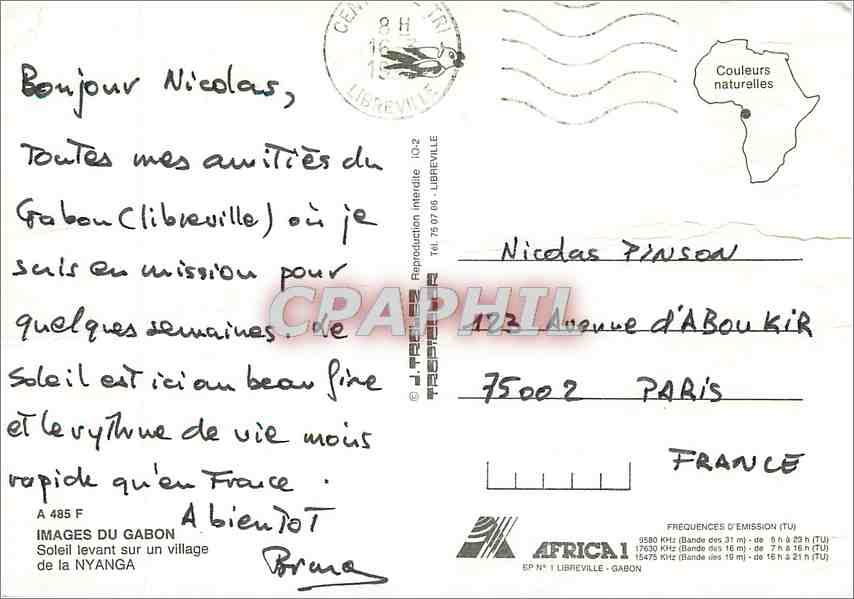 Bonjour Nicolas,
Toutes mes amitiés du
Gabon (libreville) où je
suis en mission pour
quelques semaines. de
Soleil est ici au beau fixe
et le rythme de vie moins
rapide qu'en France.
A bientot
A 485 F
IMAGES DU GABON
Soleil levant sur un village
de la NYANGA
8 H
16
LIBREVILLE
Reproduction interdite IO-2
Tél. 75 07 66 - LIBREVILLE
Couleurs
naturelles
CPAPHIL
Nicolas PINSON
123 Avenue d'ABOUKIR
75002 PARIS
FRANCE
AFRICA 1
BP N° 1 LIBREVILLE - GABON
FREQUENCES D'EMISSION (TU)
9580 KHz (Bande des 31 m) - de 5 h à 23 h (TU)
17630 KHz (Bande des 16 m) - de 7 h à 16 h (TU)
15475 KHz (Bande des 19 m) - de 16 h à 21 h (TU)